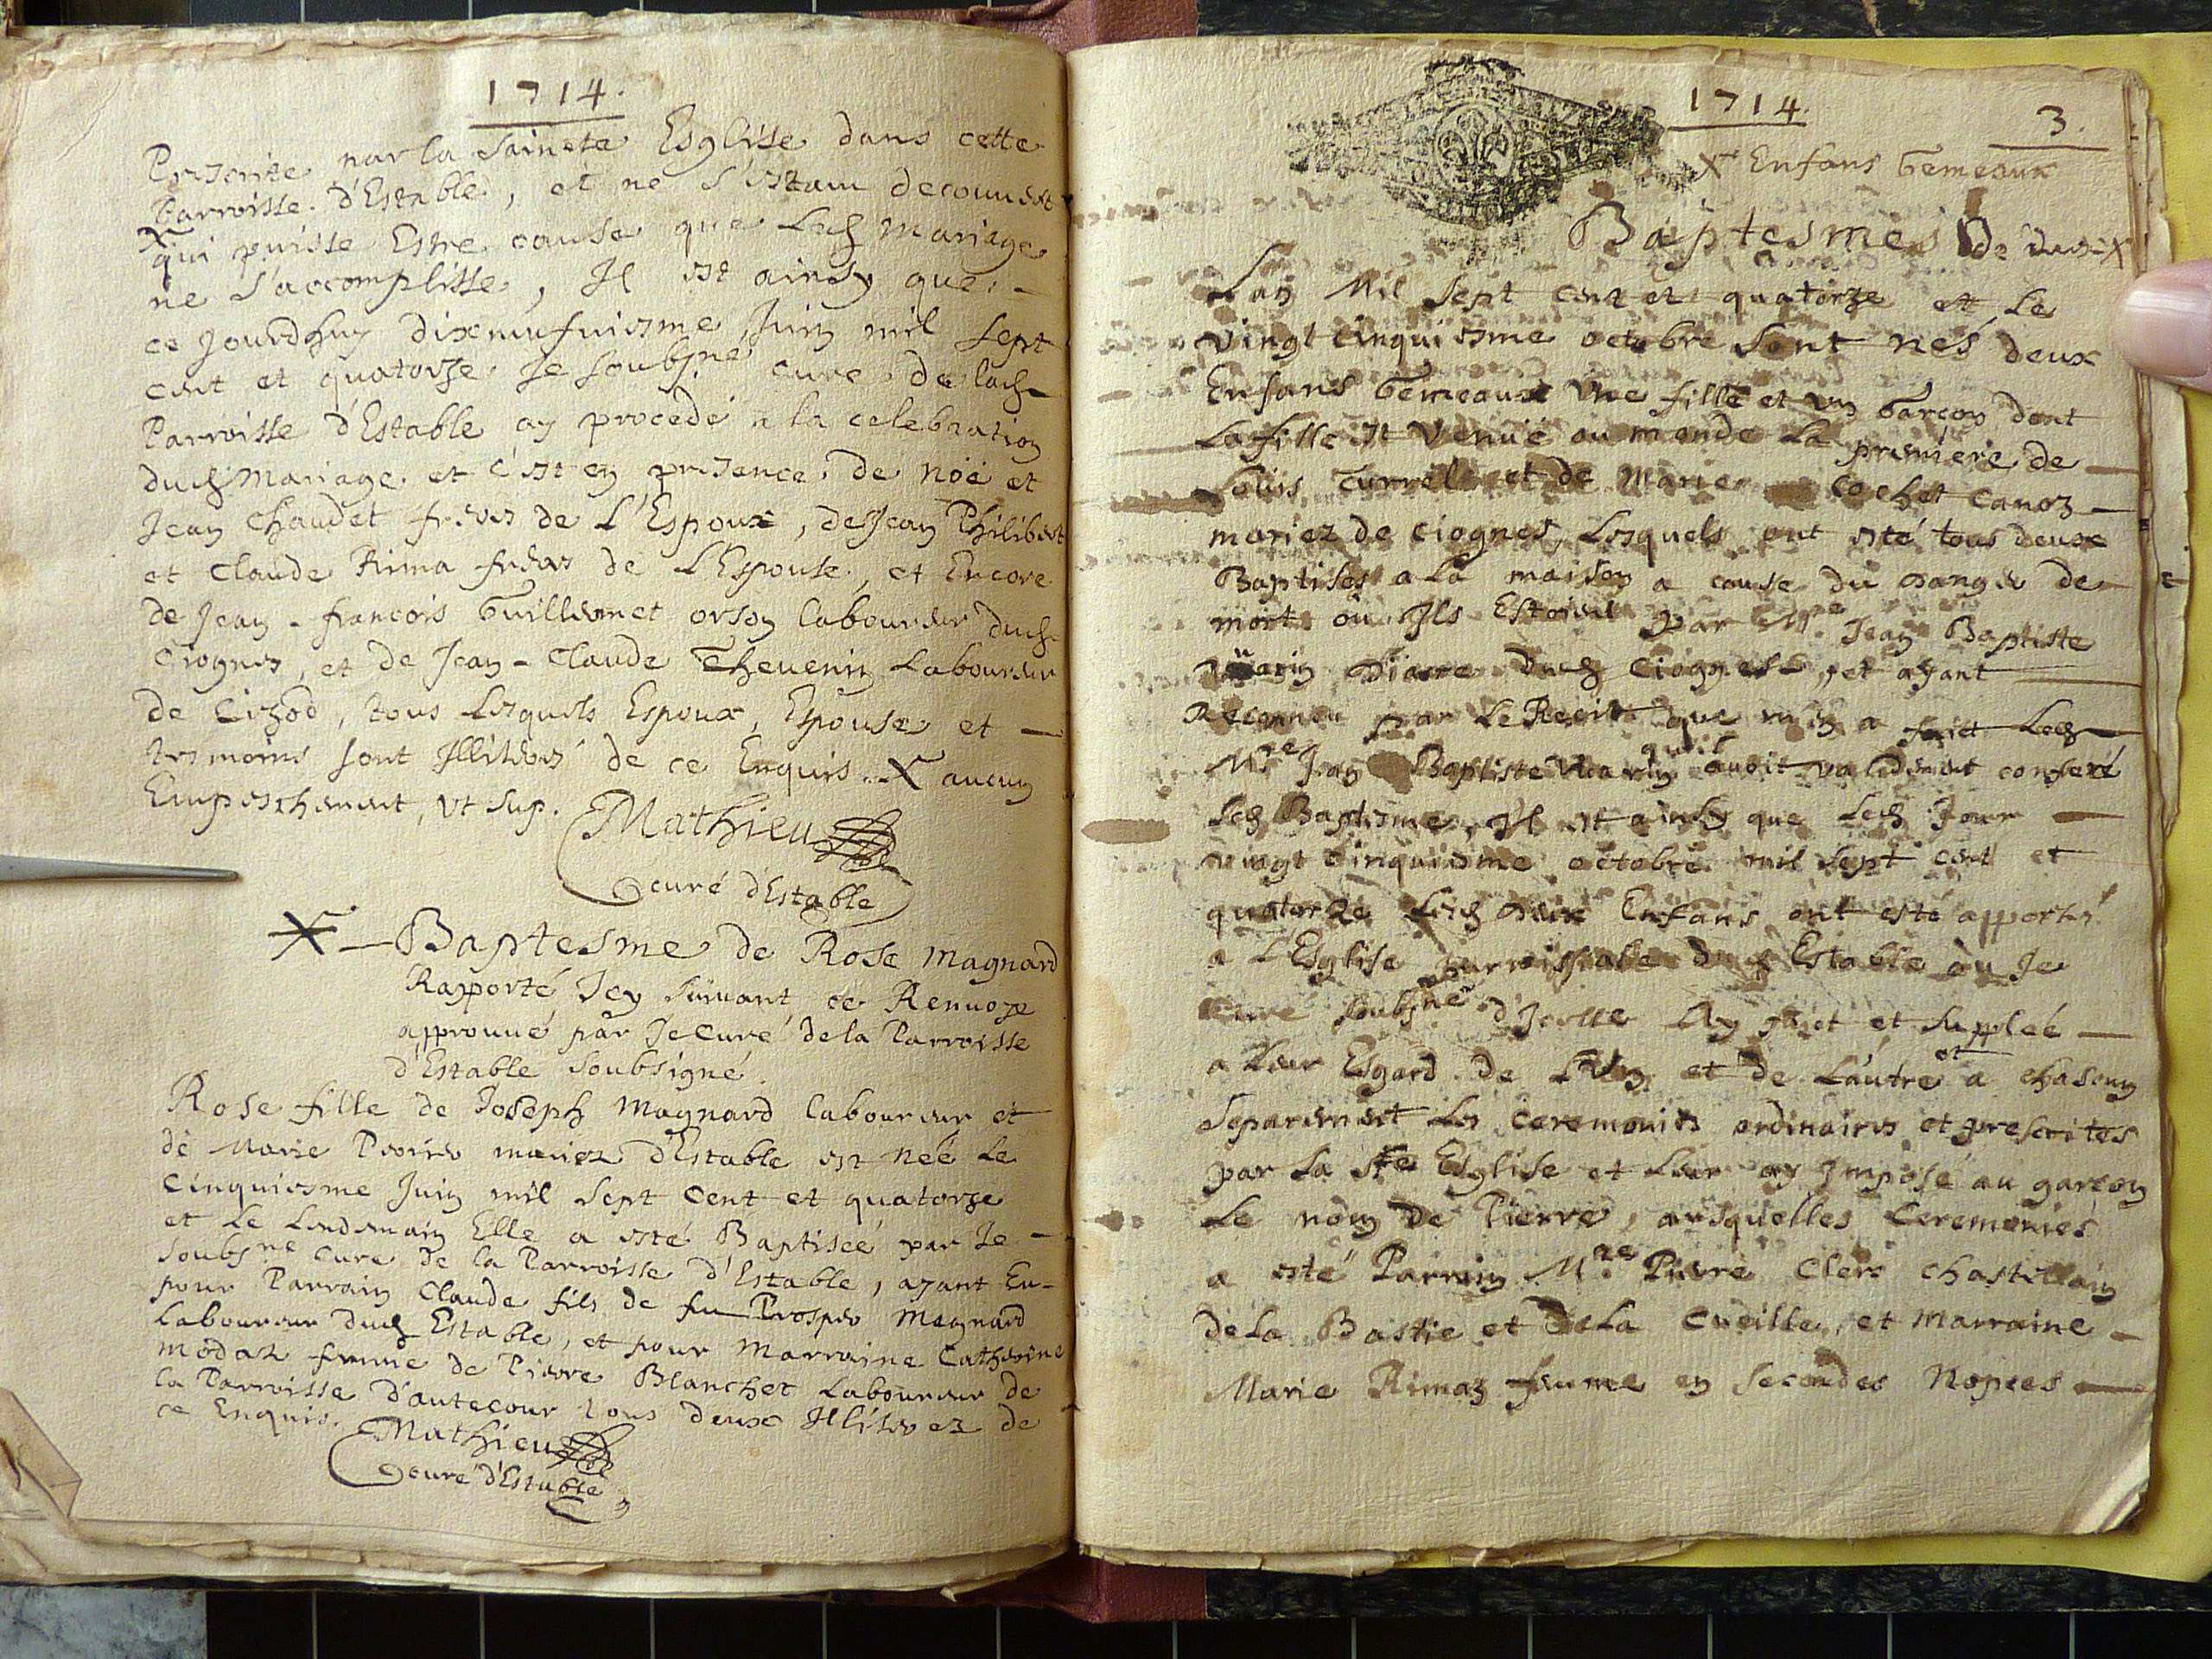 1714.
Prescrite par la Saincte Esglise dans cette
Parroisse d'Estable, et ne s'estant decouvert
X qui puisse Estre cause que Led mariage
ne s'accomplisse, Il est ainsy que
ce Jourdhuy dixneufuiesme Juin mil sept
cent et quatorze Je soubsné curé de lad
Parroisse d'Estable ay procedé a la celebration
dud mariage et c'est en presence de noé et
Jean Chaudet freres de L'Espoux, de Jean Philibert
et Claude Rima freres de L'Espouse, et Encore
de Jean-francois Guillermet orson laboureur dud
Ciognes, et de Jean-Claude Thevenin Laboureur
de Cizod, tous Lesquels Espoux, Espouse et
tesmoins sont Illiteres de ce Enquis. X aucun
Empeschement, ut sup.
Mathieu
curé d'Estable
X — Baptesme de Rose magnard
Rapporté Icy suivant ce Renvoye
approuvé par Je Curé de la Parroisse
d'Estable soubsigné.
Rose fille de Joseph magnard laboureur et
de Marie mariez d'Estable est née Le
Cinquiesme Juin mil sept Cent et quatorze
et Le Lendemain Elle a esté Baptisée par Je
soubsné curé de la Parroisse d'Estable, ayant Eu
pour Parrain Claude fils de fu Prosper Magnard
Laboureur dud Estable, et pour Marraine Catherine
modaz femme de Pierre Blanchet Laboureur de
la Parroisse d'autecour tous deux Illiterez de
ce Enquis.
Mathieu
curé d'Estable
1714.
3.
X Enfans Gemeaux
Baptesmes de deux X
Lan Mil sept cent et quatorze et Le
vingt cinquiesme octobre sont nés deux
Enfans Gemeaux Une fille et un Garçon dont
La fille est venue au monde La premiere de
Louis Curret et de Marie Cochet Canoz
mariez de Ciognes, Lesquels ont esté tous deux
Baptisés a la maison a cause du danger de
mort où Ils Estoient par Mre Jean Baptiste
Vuarin Diacre dud Ciognes, et ayant
Reconnu par Le Recit que m'en a faict Led
Mre Jean Baptiste Vuarin qu'il avoit validement conferé
Led Baptesme, Il est ainsy que Led Jour
vingt cinquiesme octobre mil sept cent et
quatorze Lesd deux Enfans ont esté apportés
a L'Esglise parroissiale dud Estable où Je
curé soubsné d'Icelle Ay faict et suppleé
a Leur Esgard de L'un et de L'autre et a chascun
separement Les Ceremonies ordinaires et prescrites
par La Ste Esglise et Leur ay Imposé au garçon
Le nom de Pierre, ausquelles Ceremonies
a esté Parrain Mre Pierre Clerc chastellain
de la Bastie et de La Cueille, et Marraine
Marie Rimaz femme en secondes Nopces